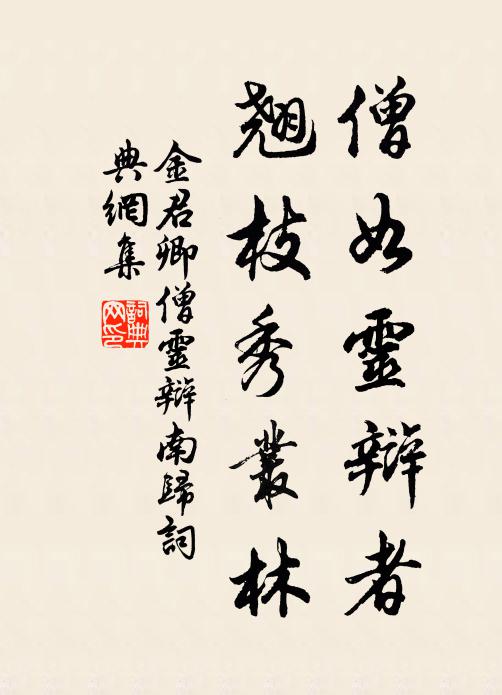 僧如靈辯者
翹枝秀叢林
金君卿僧靈辯南歸詞
典網集
詞典
网印